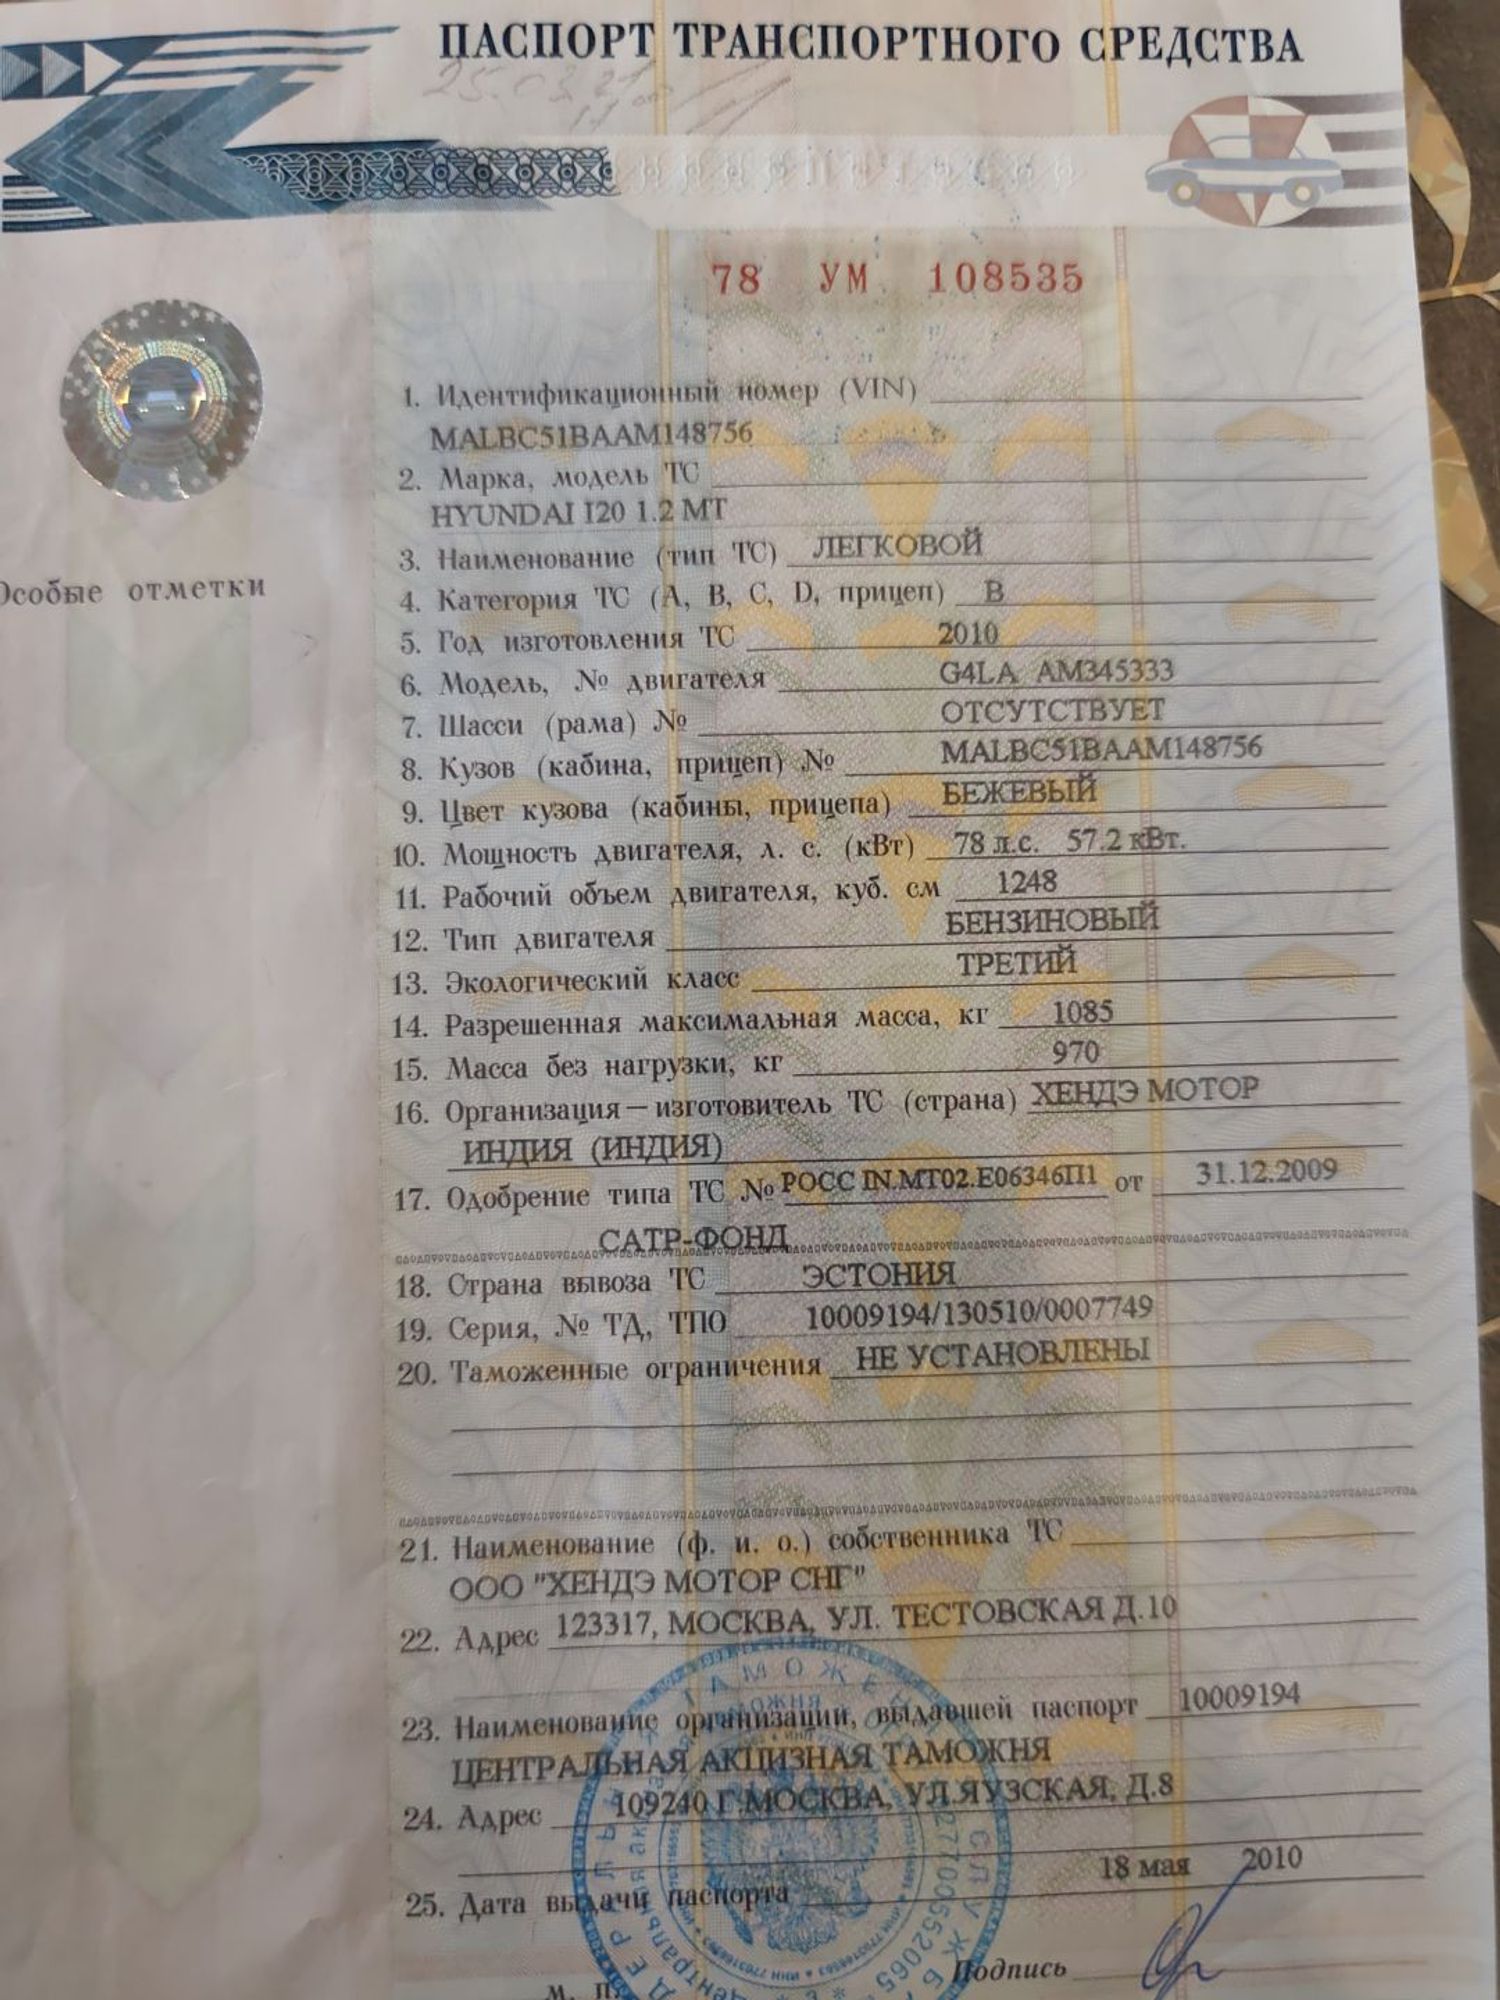 ПАСПОРТ ТРАНСПОРТНОГО СРЕДСТВА
78 УМ 108535
Особые отметки
1. Идентификационный номер (VIN)
MALBC51BAAM148756
2. Марка, модель ТС
HYUNDAI I20 1.2 MT
3. Наименование (тип ТС) ЛЕГКОВОЙ
4. Категория ТС (A, B, C, D, прицеп) В
5. Год изготовления ТС 2010
6. Модель, № двигателя G4LA AM345333
7. Шасси (рама) № ОТСУТСТВУЕТ
8. Кузов (кабина, прицеп) № MALBC51BAAM148756
9. Цвет кузова (кабины, прицепа) БЕЖЕВЫЙ
10. Мощность двигателя, л. с. (кВт) 78 л.с. 57.2 кВт.
11. Рабочий объем двигателя, куб. см 1248
12. Тип двигателя БЕНЗИНОВЫЙ
13. Экологический класс ТРЕТИЙ
14. Разрешенная максимальная масса, кг 1085
15. Масса без нагрузки, кг 970
16. Организация—изготовитель ТС (страна) ХЕНДЭ МОТОР
ИНДИЯ (ИНДИЯ)
17. Одобрение типа ТС № РОСС IN.MT02.E06346П1 от 31.12.2009
САТР-ФОНД
18. Страна вывоза ТС ЭСТОНИЯ
19. Серия, № ТД, ТПО 10009194/130510/0007749
20. Таможенные ограничения НЕ УСТАНОВЛЕНЫ
21. Наименование (ф. и. о.) собственника ТС
ООО "ХЕНДЭ МОТОР СНГ"
22. Адрес 123317, МОСКВА, УЛ. ТЕСТОВСКАЯ Д.10
23. Наименование организации, выдавшей паспорт 10009194
ЦЕНТРАЛЬНАЯ АКЦИЗНАЯ ТАМОЖНЯ
24. Адрес 109240 Г.МОСКВА, УЛ.ЯУЗСКАЯ, Д.8
25. Дата выдачи паспорта 18 мая 2010
Подпись
М. П.